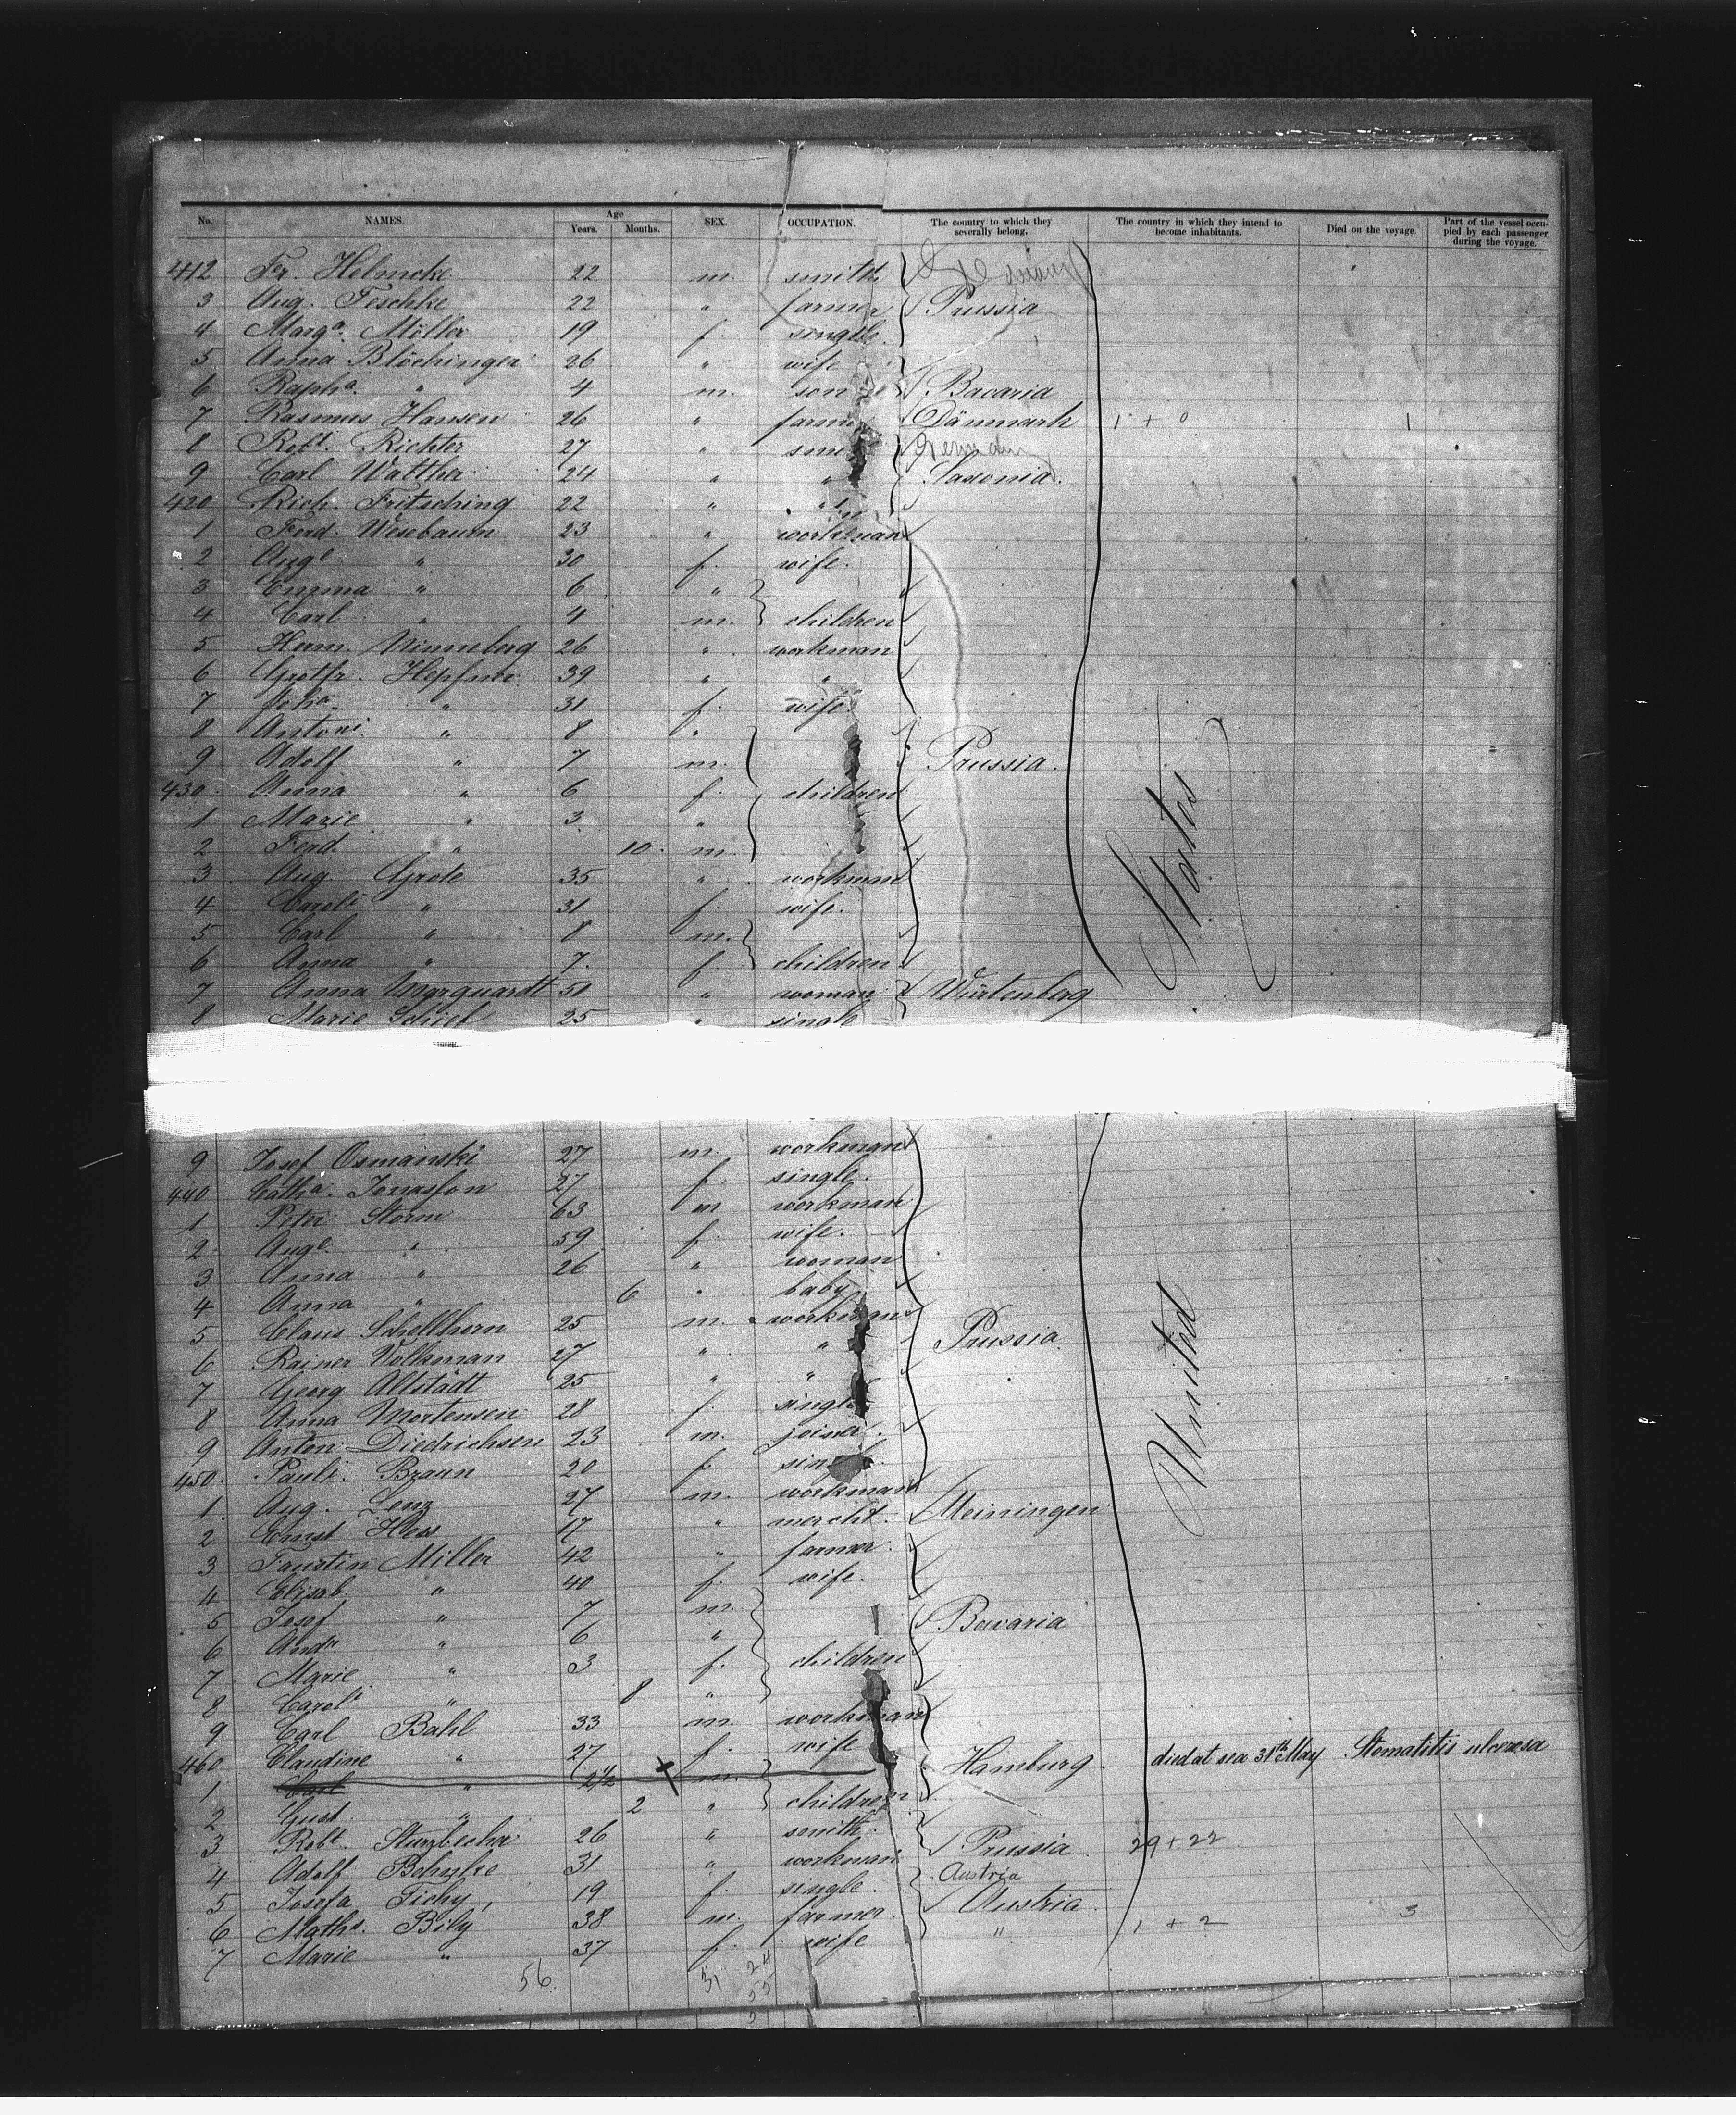 No. NAMES. Age Years. Months. SEX. OCCUPATION. The country to which they severally belong. The country in which they intend to become inhabitants. Died on the voyage. Part of the vessel occupied by each passenger during the voyage.
412 Fr. Helmcke 22 m. smith
3 Aug. Feschke 22 " farmer Prussia
4 Marga. Möller 19 f. single.
5 Anna Blöchinger 26 " wife
6 Rapha. " 4 m. son Bavaria
7 Rasmus Hansen 26 " farmer Dänmark 1 + 0 1
8 Robt. Richter 27 "
9 Carl Walther 24 " " Saxonia.
420 Rich. Fritsching 22 " "
1 Ferd. Wesebaum 23 " workman
2 Auge " 30 f. wife.
3 Emma " 6 "
4 Carl " 4 m. children
5 Herm. Ninneberg 26 " workman
6 Gottfr. Hepfner 39 " "
7 Joha. " 31 f. wife.
8 Antoni. " 8 "
9 Adolf " 7 m. Prussia.
430. Anna " 6 f. children
1 Marie " 3 "
2 Ferd. " 10. m.
3 Aug. Grote 35 " workman
4 Caroli " 31 f. wife.
5 Carl " 8 m.
6 Anna " 7. f. children
7 Anna Marquardt 51 " woman Würtenberg
8 Marie Schief 25 " single
States
9 Josef Osmanski 27 m. workman
440 Catha. Jonasson 27 f. single.
1 Peter Storm 63 m workman
2 Auge. " 59 f. wife.
3 Anna " 26 " woman
4 Anna " 6 " baby
5 Claus Schellhorn 25 m. workman
6 Rainer Volkman 27 " " Prussia.
7 Georg Altstädt 25 " "
8 Anna Mortensen 28 f. single
9 Anton Diedrichsen 23 m. joiner.
450. Pauli. Braun 20 f.
1 Aug. Lenz 27 m. workman
2 Ernst Hess 17 " mercht. Meiningen
3 Faustin Miller 42 " farmer.
4 Elisab. " 40 f. wife.
5 Josef " 7 m.
6 Andr " 6 " Bavaria
7 Marie " 3 f. children
8 Caroli " 8 "
9 Carl Bahl 33 m. workman
460 Claudine " 27 f. wife
1 Carl " 2½ m. Hamburg. died at sea 31th May Stomatitis ulcerosa
2 Gust. " 2 " children
3 Robt. Sturzbecher 26 " smith.
4 Adolf 31 " workman Prussia 29 + 22
5 Josefa Tichy, 19 f. single. Austria
6 Maths. Bily 38 m. farmer Austria.
7 Marie " 37 f. wife " 1 + 2 3
United
56. 31 24
55